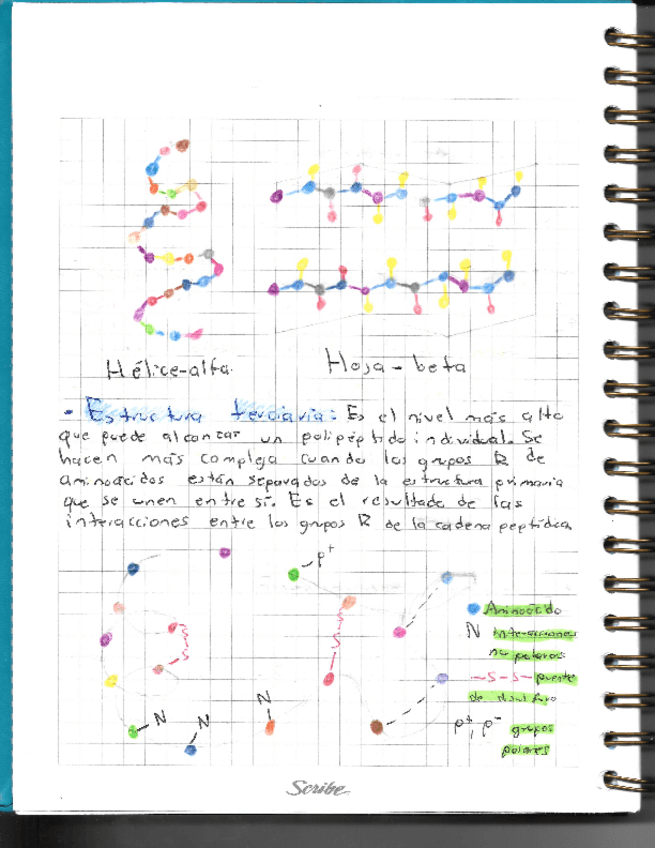 Hélice-alfa.
Hoja-beta
- Estructura terciaria: Es el nivel más alto
que puede alcanzar un polipéptido individual. Se
hacen más compleja cuando los grupos R de
aminoácidos están separados de la estructura primaria
que se unen entre sí. Es el resultado de las
interacciones entre los grupos R de la cadena peptídica
P+
N
N
N
S
S
S
S
Aminoácido
N Interacciones
no polares
-S-S- puente
de disulfuro
P+, P- grupos
polares
Scribe